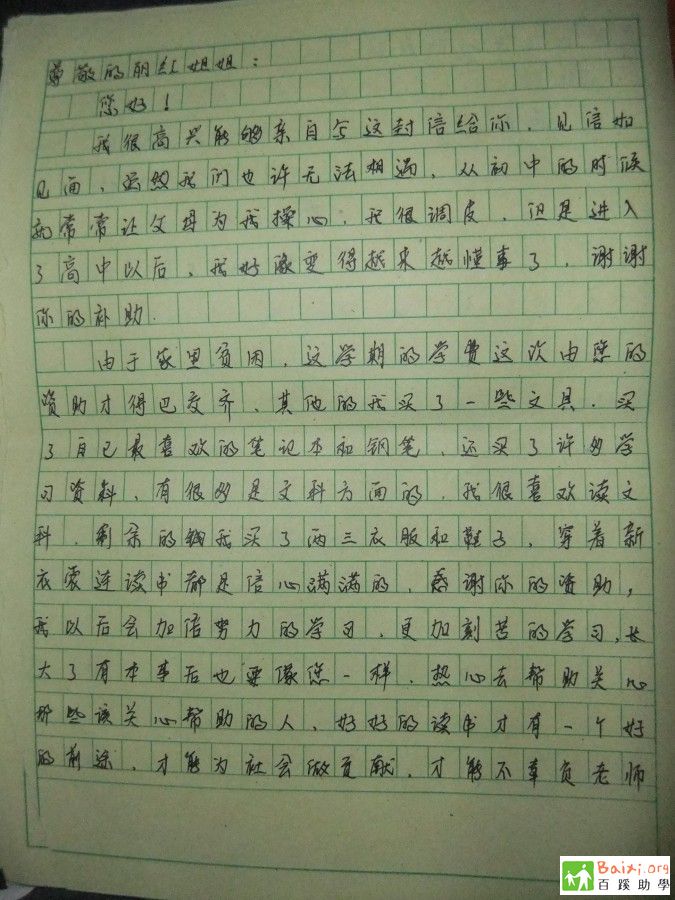 尊敬的丽红姐姐：
您好！
我很高兴能够亲自写这封信给你，见信如
见面，虽然我们也许无法相遇，从初中的时候
就常常让父母为我操心，我很调皮，但是进入
了高中以后，我好像变得越来越懂事了，谢谢
你的补助.
由于家里贫困，这学期的学费这次由您的
资助才得已交齐、其他的我买了一些文具，买
了自已最喜欢的笔记本和钢笔，还买了许多学
习资料，有很多是文科方面的，我很喜欢读文
科，剩余的钱我买了两三衣服和鞋子，穿着新
衣裳连读书都是信心满满的，感谢你的资助，
我以后会加倍努力的学习，更加刻苦的学习，长
大了有本事后也要像您一样，热心去帮助关心
那些该关心帮助的人，好好的读书才有一个好
的前途，才能为社会做贡献，才能不辜负老师
Baixi.org
百蹊助學